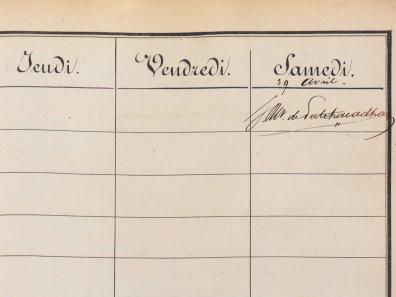 Jeudi. Vendredi. Samedi.
29 Avril.
de